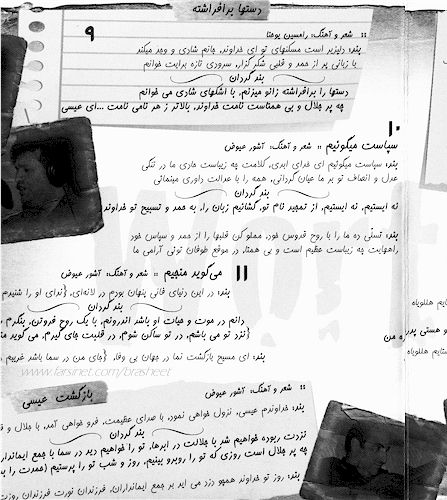 دستها برافراشته
۹
:: شعر و آهنگ: رامسین یوخنا
بند: دلپزیر است مسکنهای تو ای خداوند، جانم شادی و وجد میکند
با زبانی پر از حمد و قلبی شکر گزار، سرودی تازه برایت خوانم
بند گردان
دستها را برافراشته زانو میزنم، با اشکهای شادی می خوانم
چه پر جلال و بی همتاست نامت خداوند، بالاتر ز هر نامی نامت ...ای عیسی
۱۰
سپاست میگوئیم :: شعر و آهنگ: آشور عیوض
بند: سپاست میگوئیم ای خدای ابدی، کلامت چه زیباست هادی ما در تنگی
عدل و انصاف تو بر ما عیان گردانی، همه را با عدالت داوری مینمائی
بند گردان
نه ایستیم، نه ایستیم، از تمجید نام تو، گشائیم زبان را، به حمد و تسبیح تو خداوند
بند: تسلّی ده ما را با روح قدوس خود، مملو کن قلبها را از حمد و سپاس خود
راههایت چه زیباست عظیم است و بی همتا، در موقع طوفان توئی آرامی ما
۱۱ می‌گوید منجیم :: شعر و آهنگ: آشور عیوض
بند: در این دنیای فانی پنهان بودم در لانه‌ای، {ندای او را شنیدم
بند گردان
دانم در موت و حیات او باشد اندرونم، با یک روح فروتن، بنگرم
{نزد تو می باشم، در تو ساکن شوم، در قلبت جای گیرم، می گوید
بند: ای مسیح بازگشت نما در جهان بی وفا، {جای من در سما باشد غریبم
www.farsinet.com/brasheet
بازگشت عیسی
:: شعر و آهنگ: آشور عیوض
بند: خداوندم عیسی، نزول خواهی نمود، با صدای عظیمت، فرو خواهی آمد، با جلال و
بند گردان
نزدت ربوده خواهیم شد با جلالت در ابرها، تو را خواهیم دید در سما با جمع ایمانداران
چه پر جلال است روزی که تو را روبرو بینیم، روز و شب تو را پرستیم
بند: روز تو خداوند همچو دزد می آید بر جمع ایمانداران، فرزندان نورت فرزندان روزت
ستایم هللویاه
و هستی پدر
ه من
ستایم هللویاه